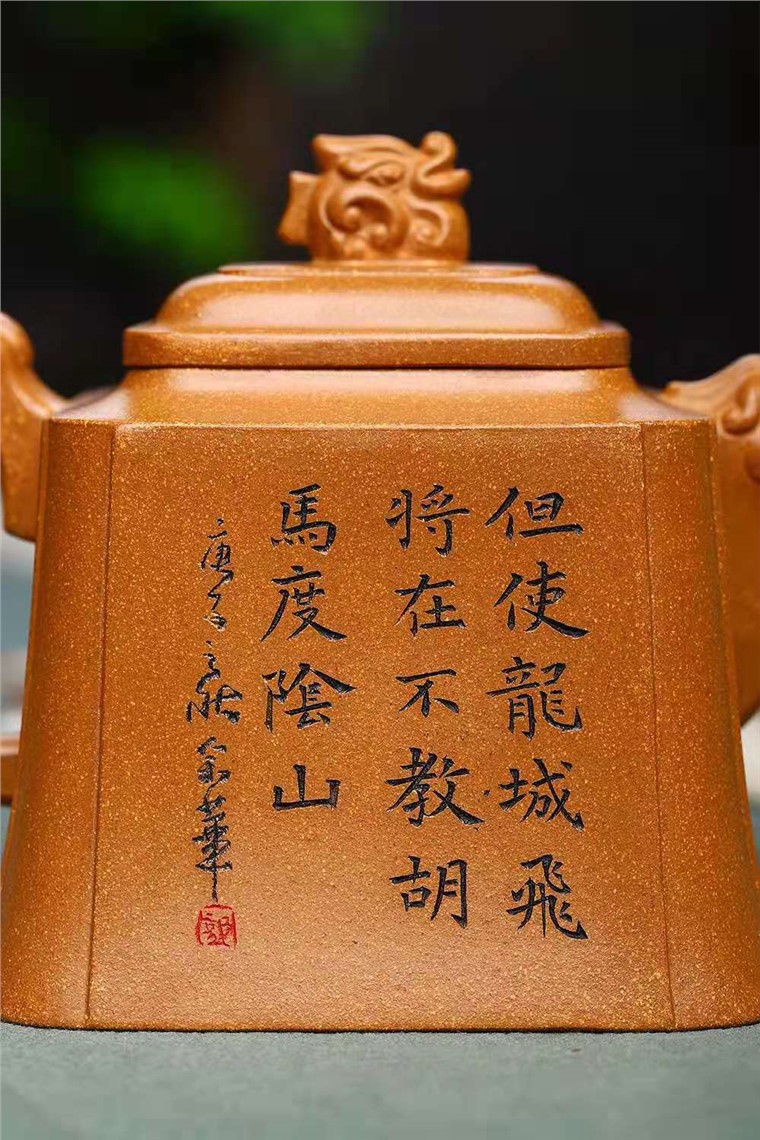 但使龍城飛
將在不教胡
馬度陰山
庚子之秋金華